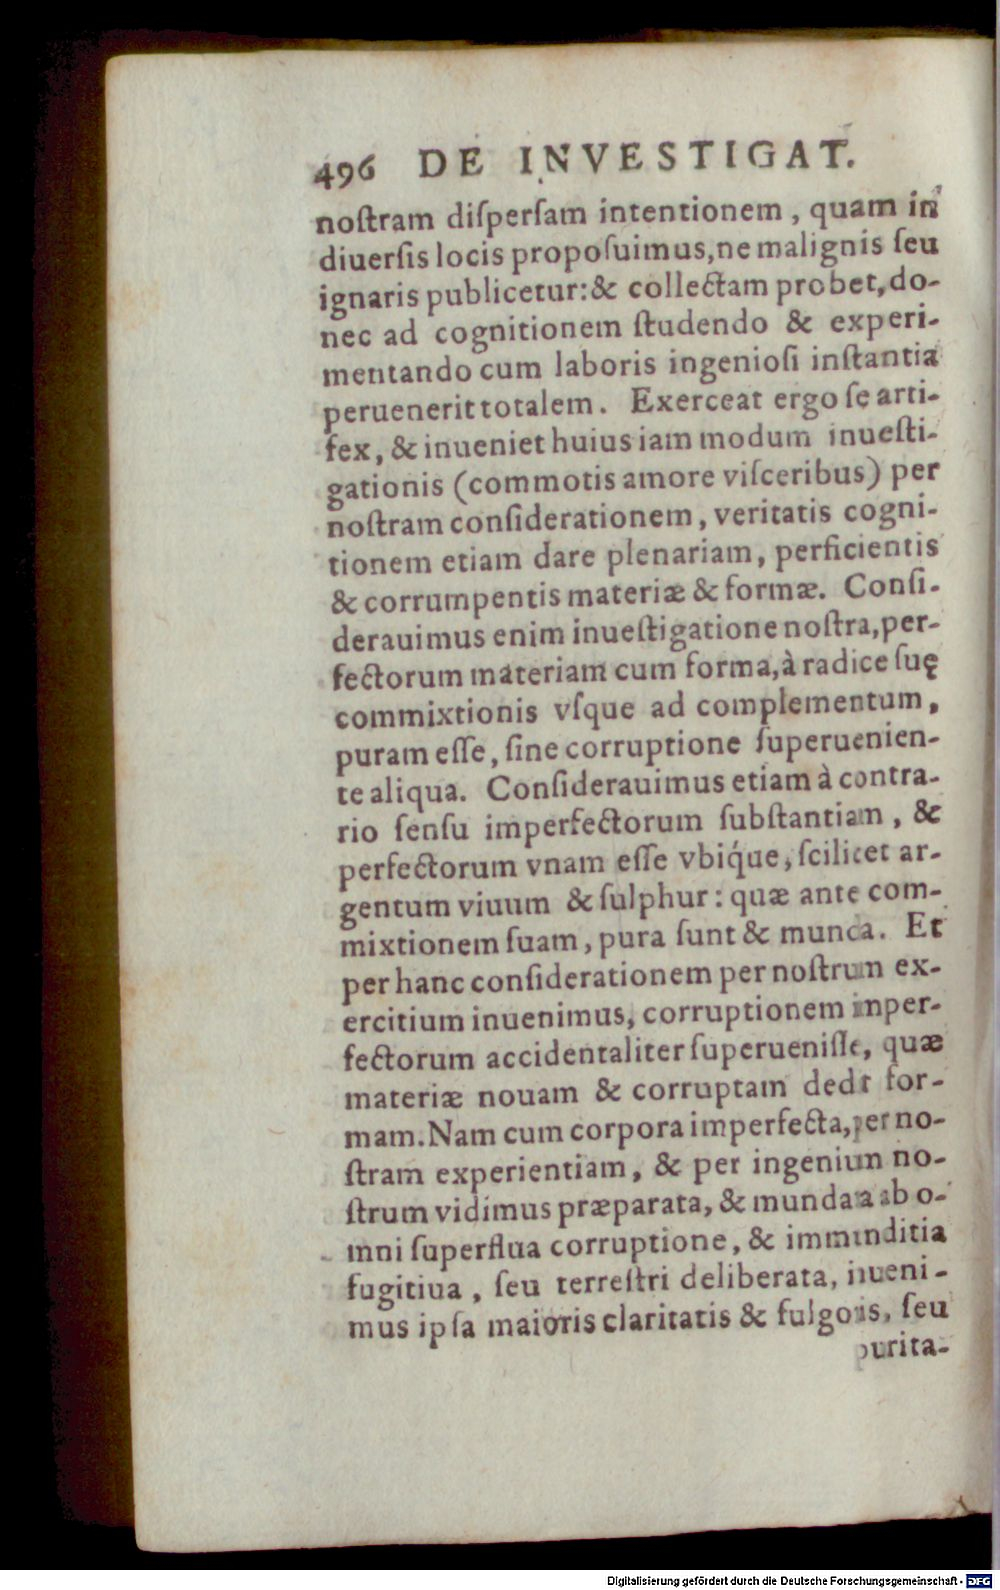 496 DE INVESTIGAT.
noſtram diſperſam intentionem, quam in
diuerſis locis propoſuimus, ne malignis ſeu
ignaris publicetur: & collectam probet, do-
nec ad cognitionem ſtudendo & experi-
mentando cum laboris ingenioſi inſtantia
peruenerit totalem. Exerceat ergo ſe arti-
fex, & inueniet huius iam modum inueſti-
gationis (commotis amore viſceribus) per
noſtram conſiderationem, veritatis cogni-
tionem etiam dare plenariam, perficientis
& corrumpentis materiæ & formæ. Conſi-
derauimus enim inueſtigatione noſtra, per-
fectorum materiam cum forma, à radice ſuę
commixtionis vſque ad complementum,
puram eſſe, ſine corruptione ſuperuenien-
te aliqua. Conſiderauimus etiam à contra-
rio ſenſu imperfectorum ſubſtantiam, &
perfectorum vnam eſſe vbiq́ue, ſcilicet ar-
gentum viuum & ſulphur: quæ ante com-
mixtionem ſuam, pura ſunt & munda. Et
per hanc conſiderationem per noſtrum ex-
ercitium inuenimus, corruptionem imper-
fectorum accidentaliter ſuperueniſſe, quæ
materiæ nouam & corruptam dedit for-
mam. Nam cum corpora imperfecta, per no-
ſtram experientiam, & per ingenium no-
ſtrum vidimus præparata, & mundata ab o-
mni ſuperflua corruptione, & immunditia
fugitiua, ſeu terreſtri deliberata, inueni-
mus ipſa maioris claritatis & fulgoris, ſeu
purita-
Digitalisierung gefördert durch die Deutsche Forschungsgemeinschaft - DFG